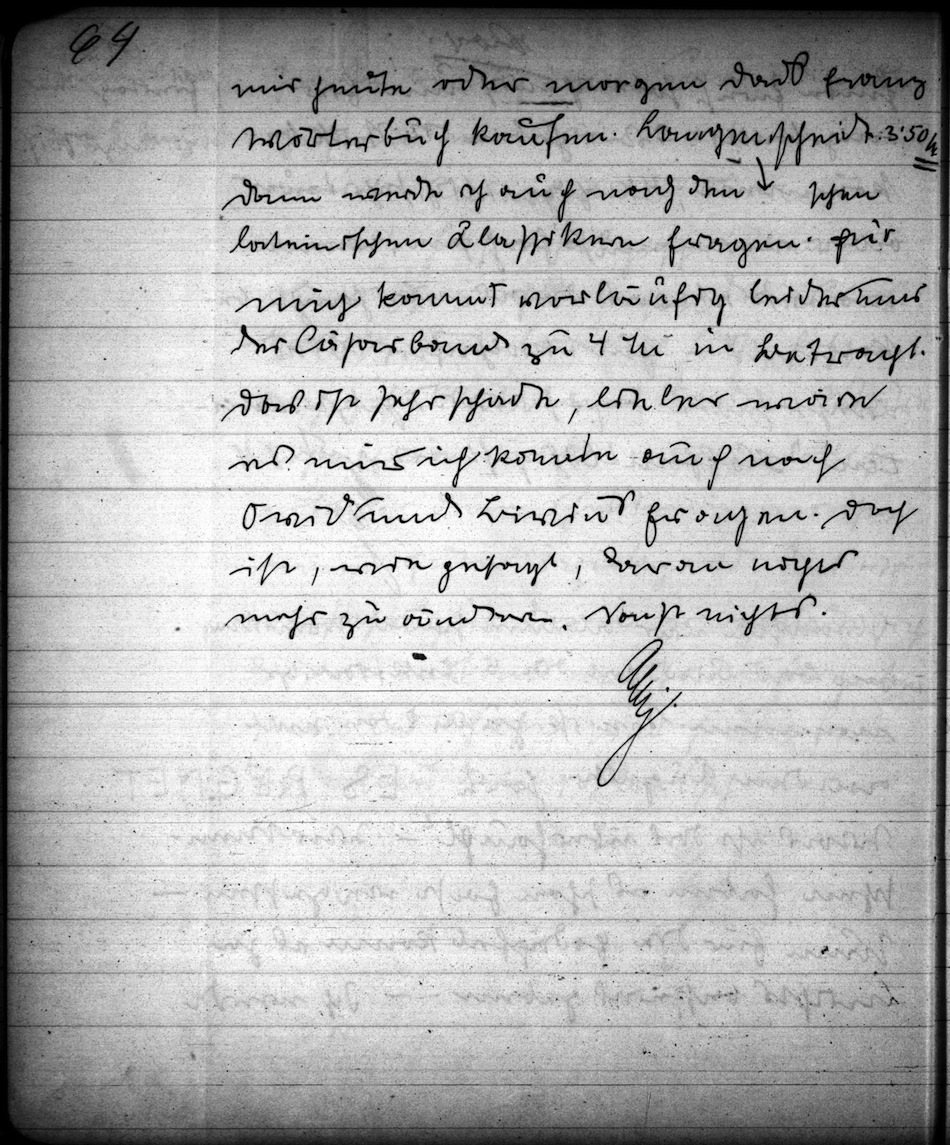 64
mir heute oder morgen das franz
Wörterbuch kaufen. Langenscheidt. 3·50 M
dann werde ich auch nach den ↓ schen
lateinischen Klassikern fragen. für
mich kommt vorläufig leider nur
der Cäsarband zu 4 M in Betracht.
das ist sehr schade, lieber wäre
es mir ich könnte auch nach
Ovid und Livius fragen. doch
ist, wie gesagt, daran nichts
mehr zu ändern. Sonst nichts.